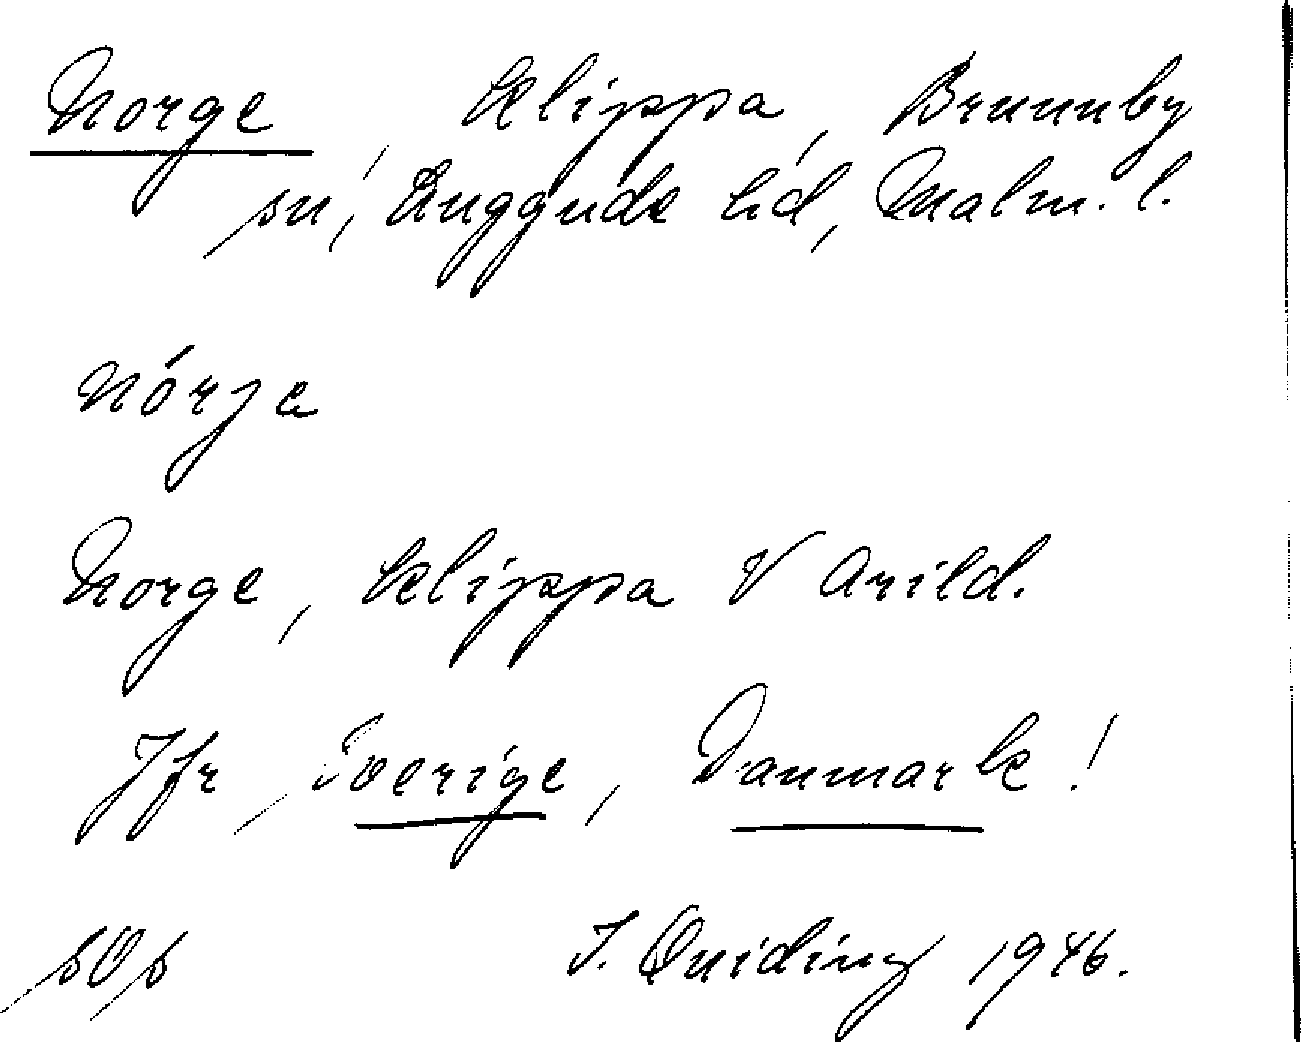 Norge, klippa, Brunnby
sn, Luggude hd, Malm. l.
nórje
Norge, klippa V Arild.
Jfr Sverige, Danmark!
I. Quiding 1946.